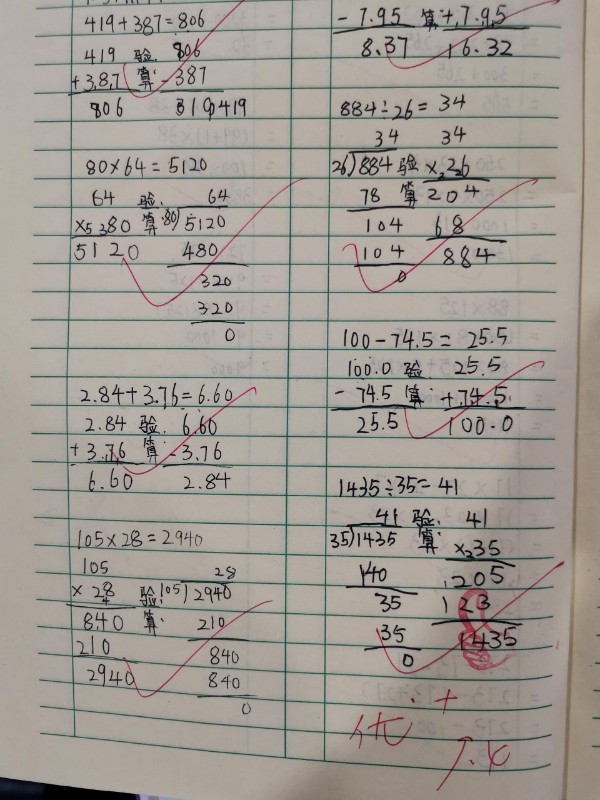 419+387=806
419 验 806
+387 算 -387
806 419
80×64=5120
64 验 64
×80 算 80)5120
5120 480
320
320
0
2.84+3.76=6.60
2.84 验 6.60
+3.76 算 -3.76
6.60 2.84
105×28=2940
105 28
×28 验 105)2940
840 算 210
210 840
2940 840
0
-7.95 算 +7.95
8.37 16.32
884÷26=34
34 34
26)884 验 ×26
78 算 204
104 68
104 884
0
100-74.5=25.5
100.0 验 25.5
-74.5 算 +74.5
25.5 100.0
1435÷35=41
41 验 41
35)1435 算 ×35
140 205
35 123
35 1435
0
优+